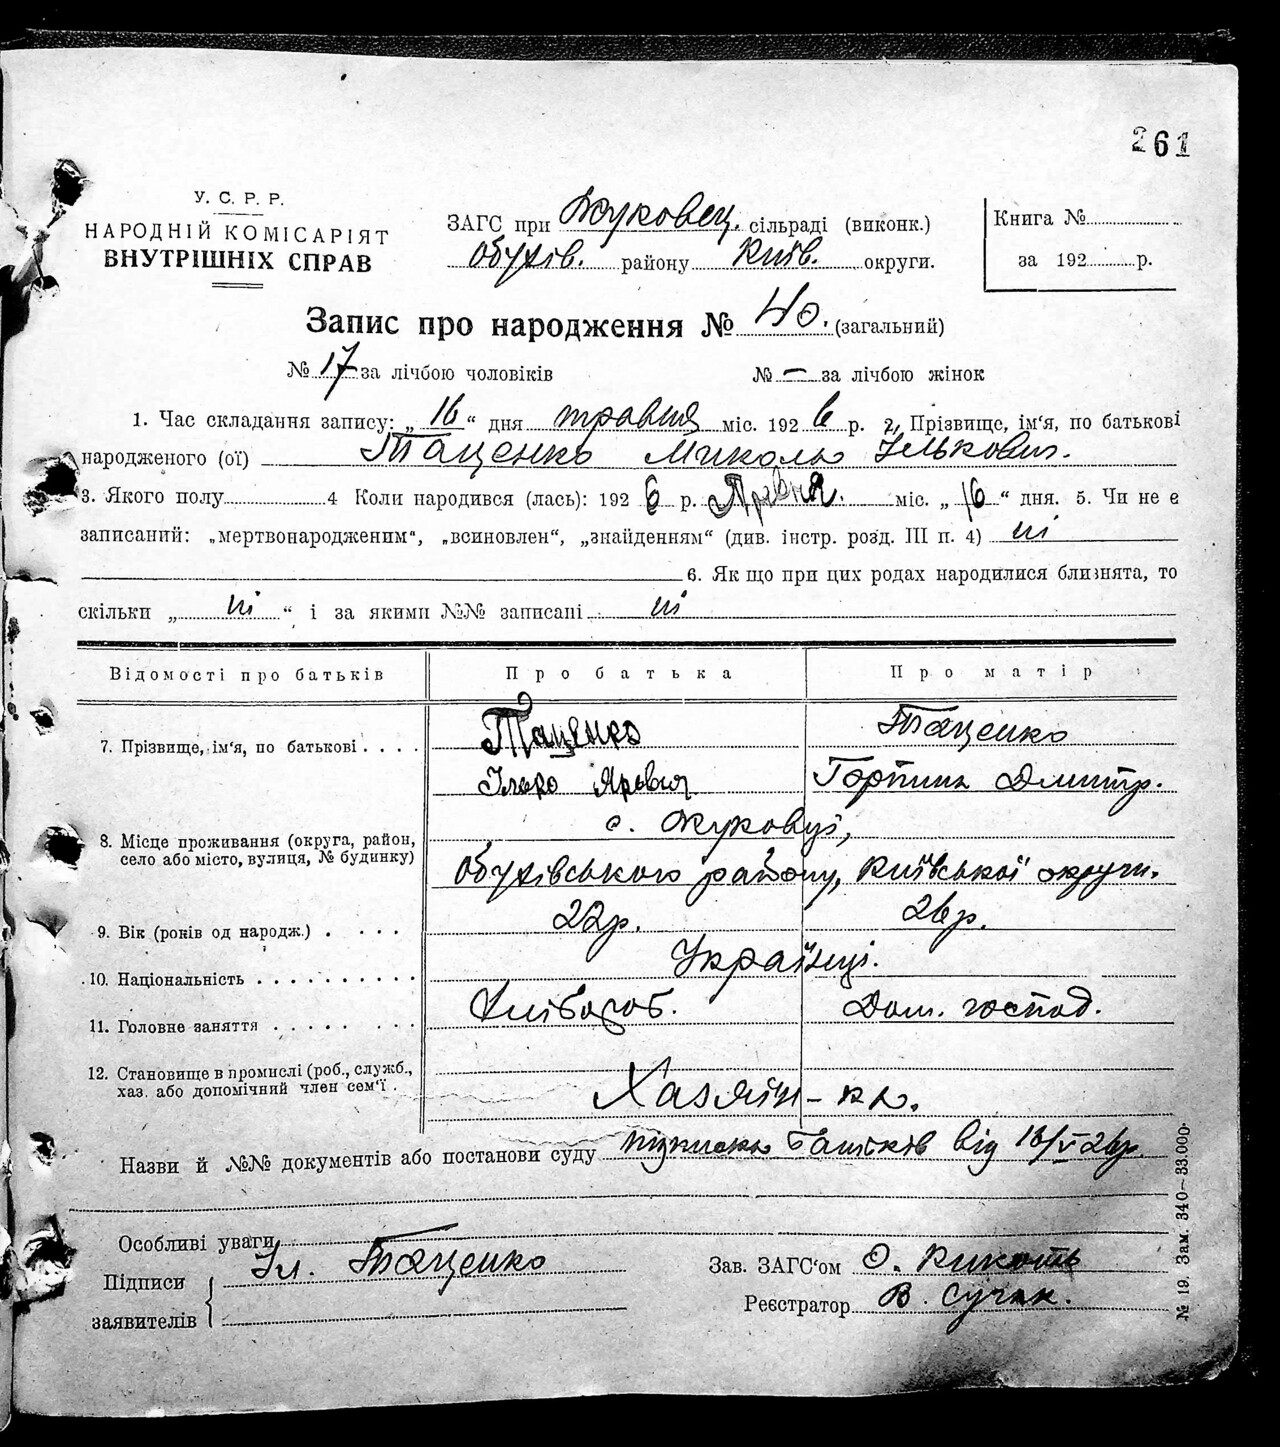 261
У. С. Р. Р.
НАРОДНІЙ КОМІСАРІЯТ
ВНУТРІШНІХ СПРАВ
ЗАГС при Жуковец. сільраді (виконк.)
Обухів. району Київ. округи.
Книга №
за 192 р.
Запис про народження № 40. (загальний)
№ 17 за лічбою чоловіків № – за лічбою жінок
1. Час складання запису: „ 16 “ дня травня міс. 192 6 р. 2. Прізвище, ім‘я, по батькові
народженого (ої) Таценко Микола Ількович.
3. Якого полу 4 Коли народився (лась): 192 6 р. Травня. міс. „ 16 “ дня. 5. Чи не є
записаний: „мертвонародженим“, „всиновлен“, „знайденням“ (див. інстр. розд. III п. 4) ні
6. Як що при цих родах народилися близнята, то
скільки „ ні “ і за якими №№ записані ні
Відомості про батьків Про батька Про матір
7. Прізвище, ім‘я, по батькові . . . . Таценко Таценко
Ілько Горпина Дмитр.
8. Місце проживання (округа, район, с. Жуковці,
село або місто, вулиця, № будинку) Обухівського району, Київської округи.
9. Вік (років од народж.) . . . . 22р. 26р.
10. Національність . . . . . . . . . . Українці.
11. Головне заняття . . . . . . . . Хлібороб. Дом. господ.
12. Становище в промислі (роб., служб.,
хаз. або допомічний член сем‘ї . Хазяїн – кл.
Назви й №№ документів або постанови суду батьків від 16/V 26р.
Особливі уваги
Підписи Іл. Таценко
заявителів
Зав. ЗАГС‘ом О.
Реєстратор В.
№ 19. Зам. 340–33.000